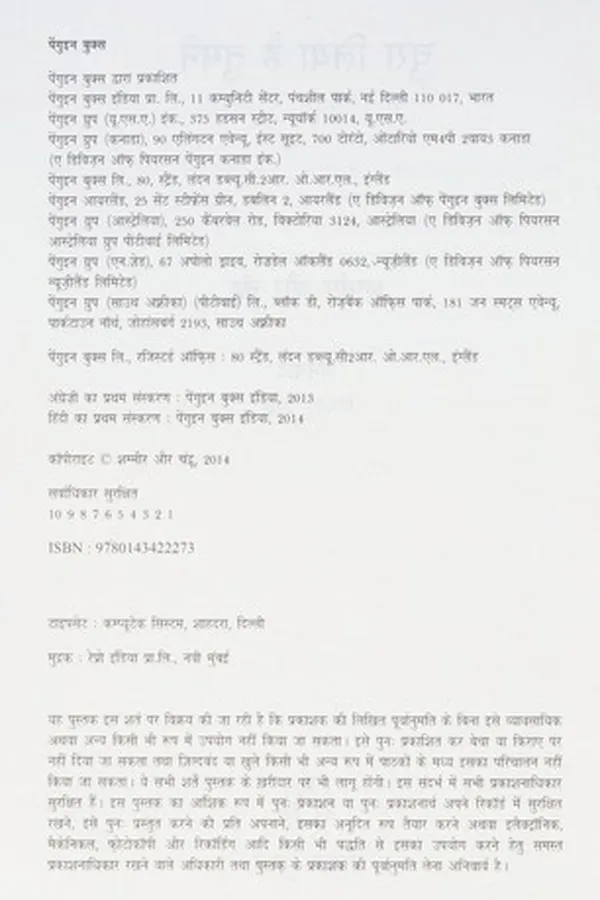 चुरा लिया है तुमने
पेंगुइन बुक्स
पेंगुइन बुक्स द्वारा प्रकाशित
पेंगुइन बुक्स इंडिया प्रा. लि., 11 कम्युनिटी सेंटर, पंचशील पार्क, नई दिल्ली 110 017, भारत
पेंगुइन ग्रुप (यू.एस.ए.) इंक., 375 हडसन स्ट्रीट, न्यूयॉर्क 10014, यू.एस.ए.
पेंगुइन ग्रुप (कनाडा), 90 एलिंगटन एवेन्यू, ईस्ट सूइट, 700 टोरंटो, ओंटारियो एम4पी 2वाय3 कनाडा
(ए डिविज़न ऑफ़ पियरसन पेंगुइन कनाडा इंक.)
पेंगुइन बुक्स लि., 80, स्ट्रैंड, लंदन डब्ल्यू.सी2आर. ओ.आर.एल., इंग्लैंड
पेंगुइन आयरलैंड, 25 सेंट स्टीफ़ेंस ग्रीन, डबलिन 2, आयरलैंड (ए डिविज़न ऑफ़ पेंगुइन बुक्स लिमिटेड)
पेंगुइन ग्रुप (आस्ट्रेलिया), 250 कैंबरवेल रोड, विक्टोरिया 3124, आस्ट्रेलिया (ए डिविज़न ऑफ़ पियरसन
आस्ट्रेलिया ग्रुप पीटीवाई लिमिटेड)
पेंगुइन ग्रुप (एन.ज़ेड), 67 अपोलो ड्राइव, रोज़डेल ऑकलैंड 0632, न्यूज़ीलैंड (ए डिविज़न ऑफ़ पियरसन
न्यूज़ीलैंड लिमिटेड)
पेंगुइन ग्रुप (साउथ अफ़्रीका) (पीटीवाई) लि., ब्लॉक डी, रोज़बैंक ऑफ़िस पार्क, 181 जन स्मट्स एवेन्यू,
पार्कटाउन नॉर्थ, जोहांसबर्ग 2193, साउथ अफ़्रीका
पेंगुइन बुक्स लि., रजिस्टर्ड ऑफ़िस : 80 स्ट्रैंड, लंदन डब्ल्यू.सी2आर. ओ.आर.एल., इंग्लैंड
अंग्रेज़ी का प्रथम संस्करण : पेंगुइन बुक्स इंडिया, 2013
हिंदी का प्रथम संस्करण : पेंगुइन बुक्स इंडिया, 2014
कॉपीराइट © शम्मीर और चंद्रू, 2014
सर्वाधिकार सुरक्षित
10 9 8 7 6 5 4 3 2 1
ISBN : 9780143422273
टाइपसेट : कम्प्यूटेक सिस्टम, शाहदरा, दिल्ली
मुद्रक : रेप्रो इंडिया प्रा.लि., नवी मुंबई
यह पुस्तक इस शर्त पर विक्रय की जा रही है कि प्रकाशक की लिखित पूर्वानुमति के बिना इसे व्यावसायिक
अथवा अन्य किसी भी रूप में उपयोग नहीं किया जा सकता। इसे पुनः प्रकाशित कर बेचा या किराए पर
नहीं दिया जा सकता तथा ज़िल्दबंद या खुले किसी भी अन्य रूप में पाठकों के मध्य इसका परिचालन नहीं
किया जा सकता। ये सभी शर्तें पुस्तक के ख़रीदार पर भी लागू होंगी। इस संदर्भ में सभी प्रकाशनाधिकार
सुरक्षित हैं। इस पुस्तक का आंशिक रूप में पुनः प्रकाशन या पुनः प्रकाशनार्थ अपने रिकॉर्ड में सुरक्षित
रखने, इसे पुनः प्रस्तुत करने की प्रति अपनाने, इसका अनूदित रूप तैयार करने अथवा इलैक्ट्रॉनिक,
मैकेनिकल, फ़ोटोकॉपी और रिकॉर्डिंग आदि किसी भी पद्धति से इसका उपयोग करने हेतु समस्त
प्रकाशनाधिकार रखने वाले अधिकारी तथा पुस्तक के प्रकाशक की पूर्वानुमति लेना अनिवार्य है।